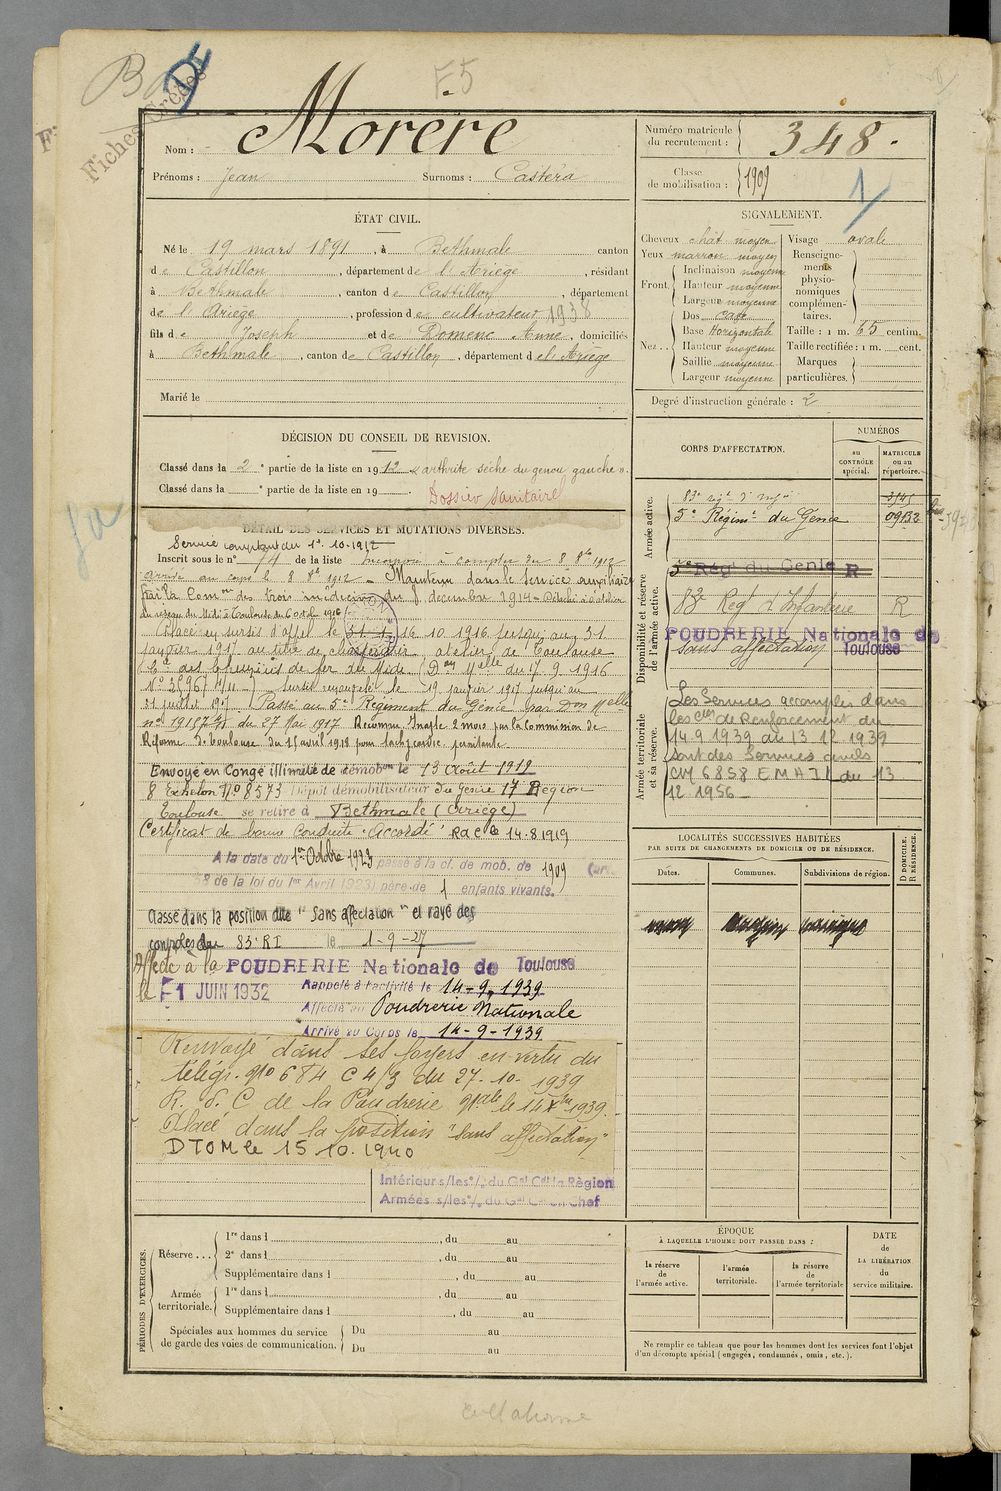 F5
Fiches Crédés
Nom : Morère
Prénoms : Jean Surnoms : Castéra
Numéro matricule du recrutement : 348.
Classe de mobilisation : 1909
ÉTAT CIVIL.
Né le 19 mars 1891, à Bethmale canton
de Castillon, département de l'Ariège, résidant
à Bethmale, canton de Castillon, département
de l'Ariège, profession de cultivateur 1938
fils de Joseph et de Domenc Anne, domiciliés
à Bethmale, canton de Castillon, département de l'Ariège
Marié le
SIGNALEMENT.
Cheveux chât moyen
Yeux marron moyen
Front. Inclinaison moyenne
Hauteur moyenne
Largeur moyenne
Nez.. Dos cave
Base Horizontale
Hauteur moyenne
Saillie moyenne
Largeur moyenne
Visage ovale
Renseignements physionomiques complémentaires.
Taille : 1 m. 65 centim.
Taille rectifiée : 1 m. cent.
Marques particulières.
Degré d'instruction générale : 2
DÉCISION DU CONSEIL DE REVISION.
Classé dans la 2e partie de la liste en 1912 « arthrite sèche du genou gauche ».
Classé dans la e partie de la liste en 19 .
Dossier sanitaire
DÉTAIL DES SERVICES ET MUTATIONS DIVERSES.
Service comptant du 1er 10-1912
Inscrit sous le n° 74 de la liste Incorporé à compter du 8 8bre 1912
arrivé au corps le 8 8bre 1912 - Maintenu dans le service auxiliaire
par la Comon des trois médecins du décembre 1914 - Détaché à l'atelier
du réseau du Midi à Toulouse du 6 octob 1916
Placé en sursis d'appel le 16 10 1916 jusqu'au 31
janvier 1917 au titre de atelier de Toulouse
Cie des Chemins de fer du Midi (Don Melle du 7 9 1916
N° 35967 Sursis renouvelé le 19 janvier 1917 jusqu'au
31 juillet 1917. Passé au 5e Régiment du Génie par Don Melle
n° du 27 Mai 1917 Reconnu Inapte 2 mois par la Commission de
Réforme de Toulouse du 15 avril 1918 pour tachycardie persistante
Envoyé en Congé illimité de démobon le 13 Août 1919
8 Echelon N° 8573 Dépôt démobilisateur du Génie 17 Région
Toulouse se retire à Bethmale (Ariège)
Certificat de bonne Conduite "Accordé" RdC le 14.8.1919
A la date du 1er Octobre 1923 passé à la cl. de mob. de 1909
58 de la loi du 1er Avril 1923) père de 1 enfants vivants.
Classé dans la position dite "Sans affectation" et rayé des
contrôles du 83e RI le 1-9-27
Affecté à la POUDRERIE Nationale de Toulouse
le 1 JUIN 1932
Rappelé à l'activité le 14-9-1939
Affecté au Poudrerie Nationale
Arrivé au Corps le 14-9-1939
Renvoyé dans ses foyers en vertu du
télégr. N° 684 C 4/3 du 27-10-1939
R. d. C de la Poudrerie Nale le 1939.
Placé dans la position "Sans affectation"
DTOM le 15 10. 1940
Intérieur s/les o/. du Gal Cdt la Région
Armées s/les o/. du Gal Cdt en Chef
CORPS D'AFFECTATION.
NUMÉROS
au CONTRÔLE spécial.
MATRICULE ou au répertoire.
Armée active.
83e régt d'Infie 3545
5e Régimt du Génie 09132
Disponibilité et réserve de l'armée active.
5e Régt du Génie R
83e Regt d'Infanterie R
POUDRERIE Nationale de Toulouse
sans affectation
Armée territoriale et sa réserve.
Les Services accomplis dans
les cies de Renforcement du
14 9 1939 au 13 12 1939
sont des Services civils
CM 6858 EMA du 13
12 1956
LOCALITÉS SUCCESSIVES HABITÉES
PAR SUITE DE CHANGEMENTS DE DOMICILE OU DE RÉSIDENCE.
Dates. Communes. Subdivisions de région. D DOMICILE. R RÉSIDENCE.
PÉRIODES D'EXERCICES.
Réserve ... 1re dans l , du au
2e dans l , du au
Supplémentaire dans l , du au
Armée territoriale. 1re dans l , du au
Supplémentaire dans l , du au
Spéciales aux hommes du service de garde des voies de communication. Du au
Du au
ÉPOQUE
À LAQUELLE L'HOMME DOIT PASSER DANS :
la réserve de l'armée active.
l'armée territoriale.
la réserve de l'armée territoriale
DATE de LA LIBÉRATION du service militaire.
Ne remplir ce tableau que pour les hommes dont les services font l'objet
d'un décompte spécial (engagés, condamnés, omis, etc.).